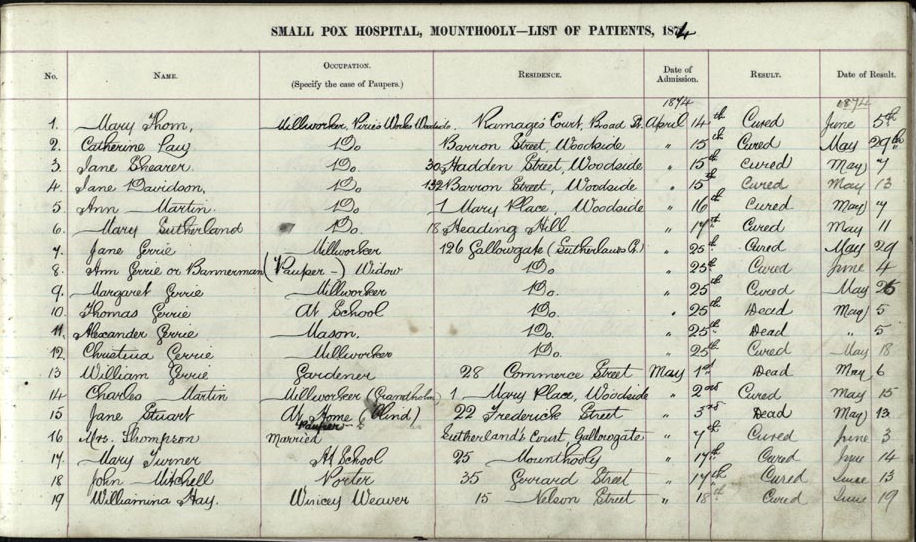 SMALL POX HOSPITAL, MOUNTHOOLY—LIST OF PATIENTS, 1874
No. NAME. OCCUPATION. (Specify the case of Paupers.) RESIDENCE. Date of Admission. RESULT. Date of Result.
1874 1874
1. Mary Thom, Millworker, Piries Works Woodside. Ramage's Court, Broad St. April 14th Cured June 5th
2. Catherine Do. Barron Street, Woodside " 15th Cured May 29th
3. Jane Shearer. Do. 30 Hadden Street, Woodside " 15th Cured May 7
4. Jane Davidson, Do. 132 Barron Street, Woodside " 15th Cured May 13
5 Ann Martin. Do. 1 Mary Place, Woodside " 16th Cured May 7
6. Mary Sutherland Do. 18 Heading Hill " 17th Cured May 11
7. Jane Gerrie Millworker 126 Gallowgate (Sutherlands Ct.) " 25th Cured May 29
8. Ann Gerrie or Bannerman (Pauper -) Widow Do. " 25th Cured June 4
9. Margaret Gerrie Millworker Do. " 25th Cured May 26
10. Thomas Gerrie At School Do. " 25th Dead May 5
11. Alexander Gerrie Mason. Do. " 25th Dead " 5
12 Christina Gerrie Millworker Do. " 25th Cured May 18
13 William Gerrie Gardener 28 Commerce Street May 1st Dead May 6
14 Charles Martin Millworker (Grandholm) 1 Mary Place, Woodside " 2nd Cured May 15
15 Jane Stuart At Home (Blind) 22 Frederick Street " 3rd Dead May 13
Pauper
16 Mrs. Thompson Married Sutherland's Court, Gallowgate " 7th Cured June 3
17 Mary Turner At School 25 Mounthooly " 17th Cured June 14
18 John Mitchell Porter 35 Gerrard Street " 17th Cured June 13
19 Williamina Hay. Wincey Weaver 15 Nelson Street " 18th Cured June 19